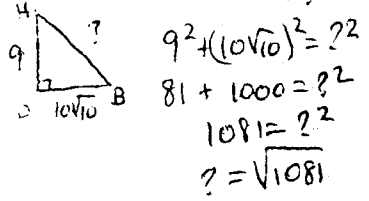 H
?
9
10√10 B
9²+(10√10)²=?²
81 + 1000=?²
1081=?²
?=√1081